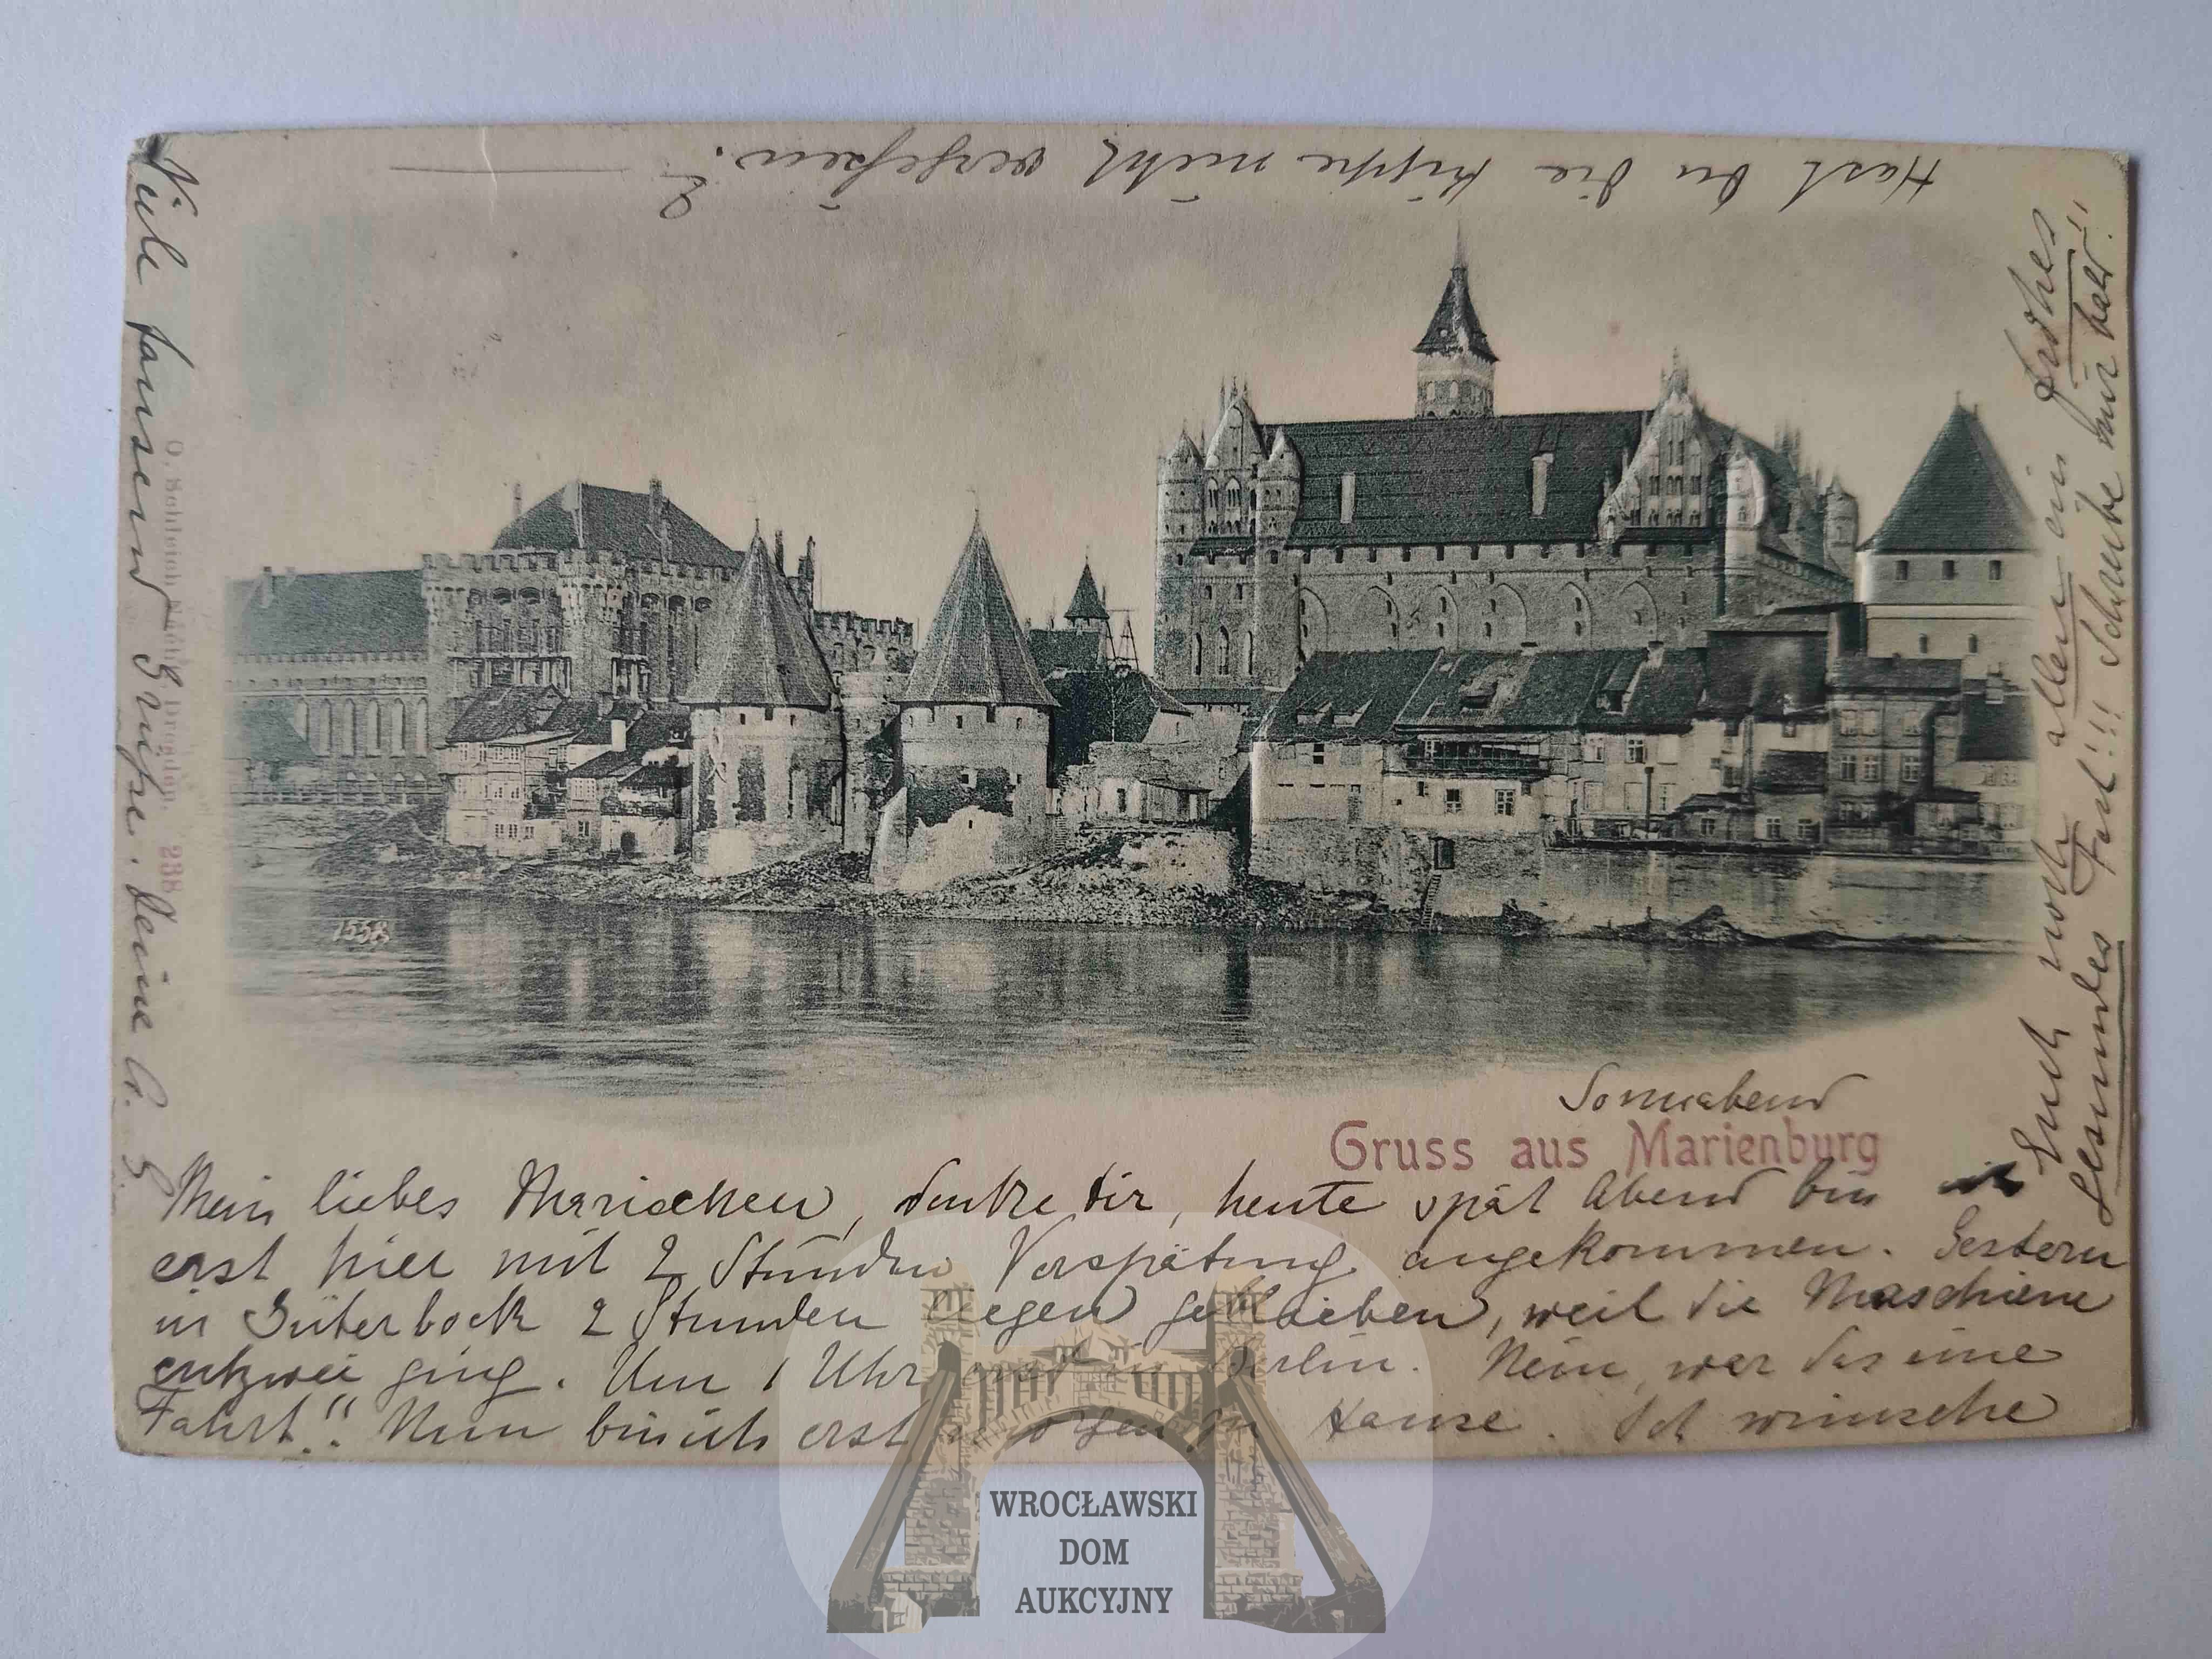 Hast du die Kippe nicht vergessen?
Sonnabend
Gruss aus Marienburg
Mein liebes Mariechen, denke dir, heute spät Abend bin ich
erst hier mit 2 Stunden Verspätung angekommen. Gestern
in Güterbock 2 Stunden liegen geblieben, weil die Maschiene
entzwei ging. Um 1 Uhr erst in Berlin. Nein, war das eine
Fahrt!! Nun bin ich erst morgen zu Hause. Ich wünsche
Euch noch allen ein frohes
gesundes Fest!!! Schreibe mir bald!!
Viele tausend Grüsse. Deine A. G.
O. Schleich Nachf. Dresden. 238
1558
WROCŁAWSKI
DOM
AUKCYJNY